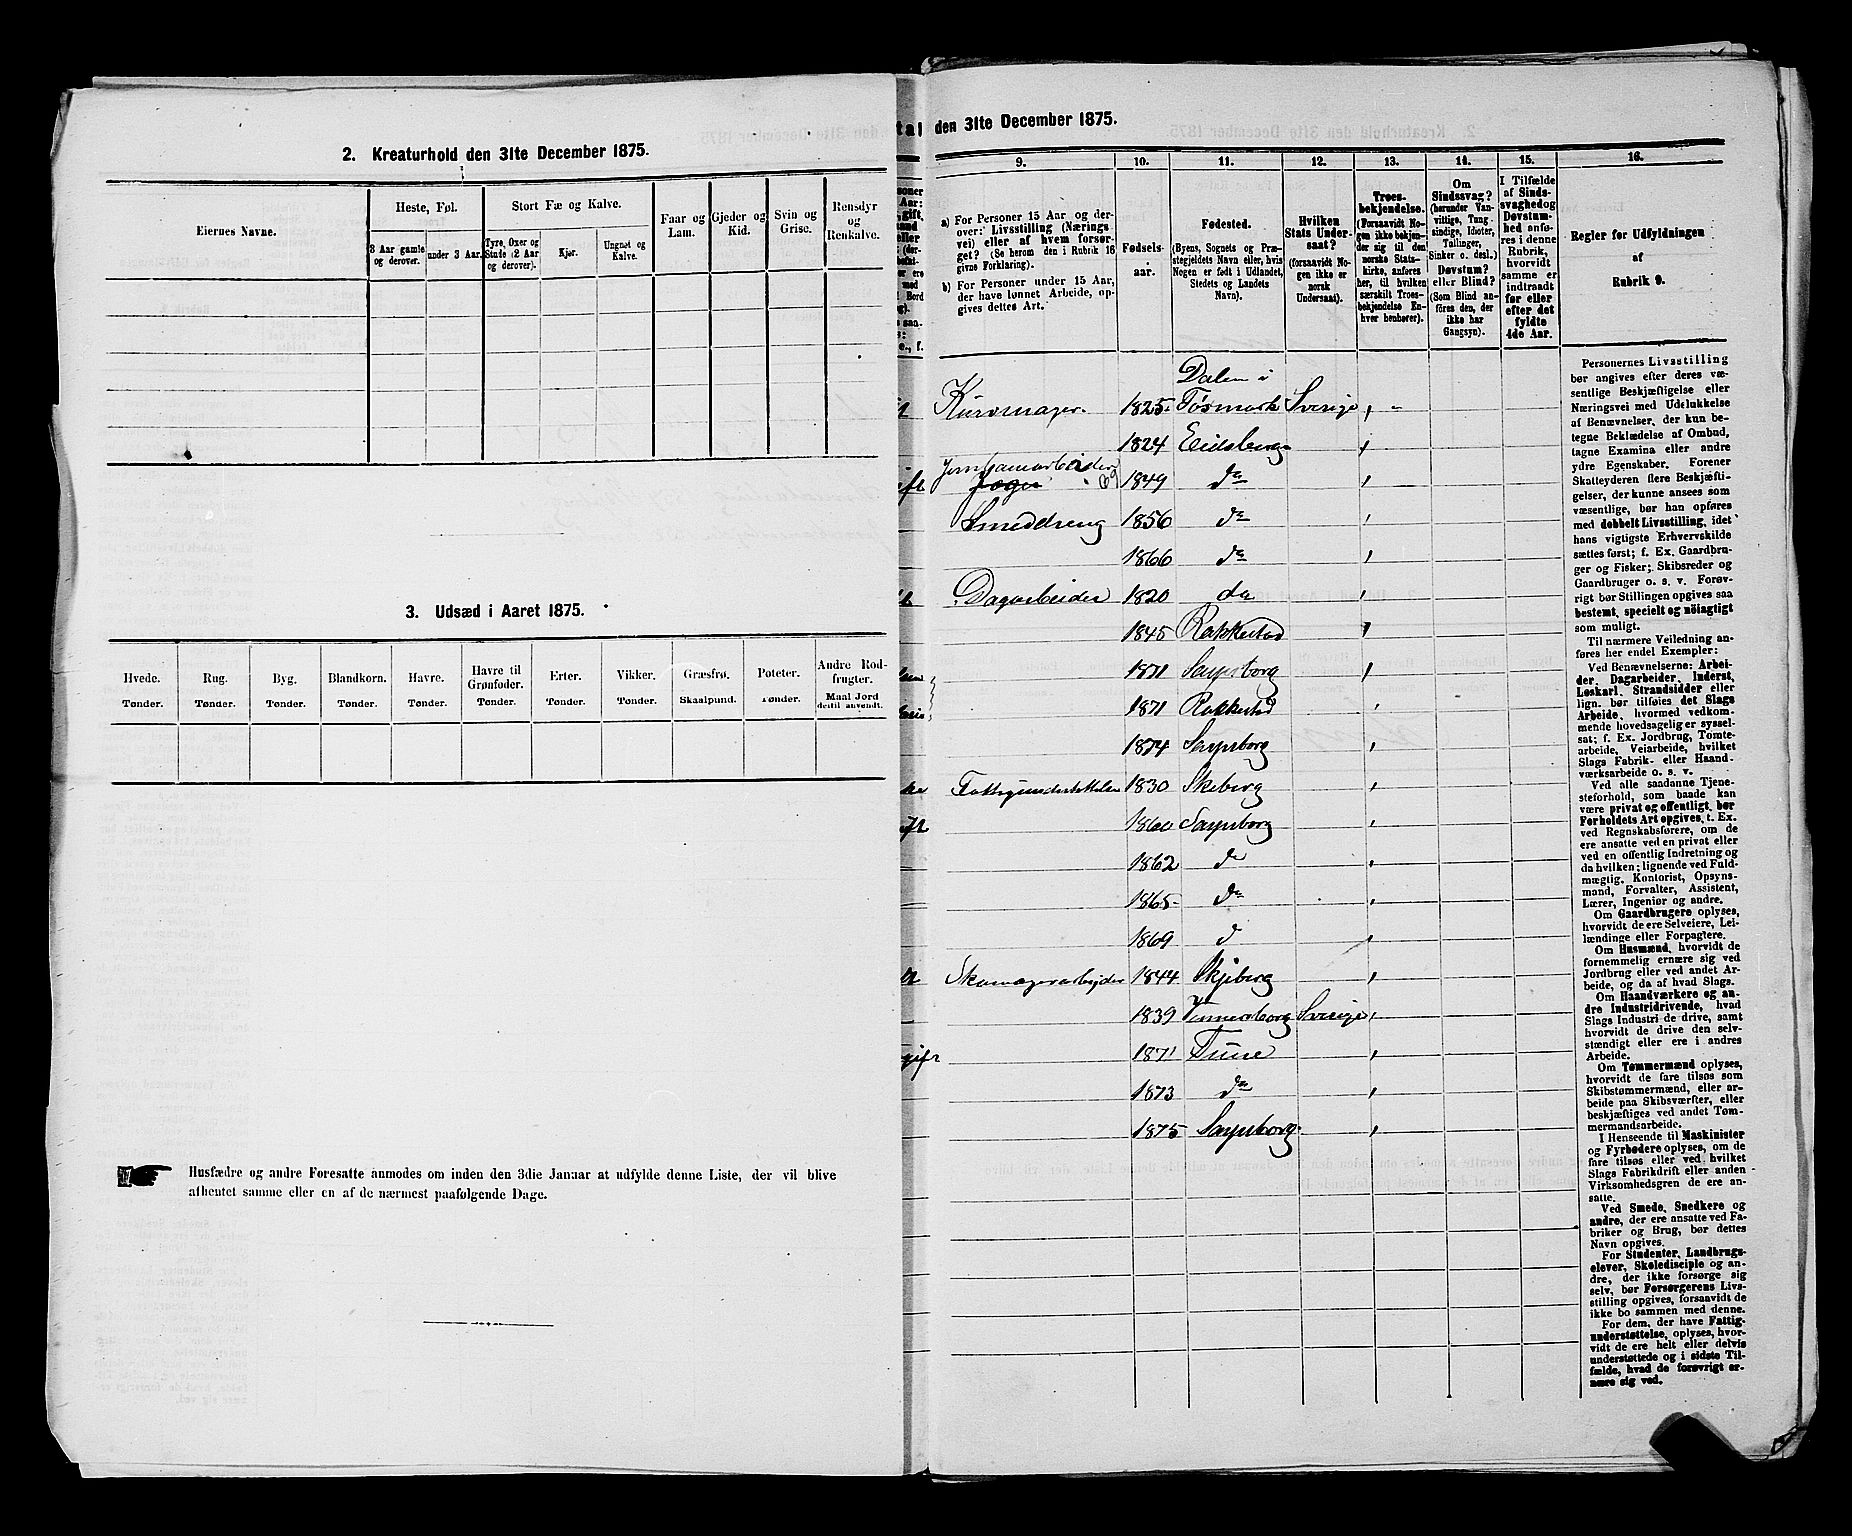 2. Kreaturhold den 31te December 1875.
Eiernes Navne.
Heste, Føl.
Stort Fæ og Kalve.
Faar og Lam.
Gjeder og Kid.
Svin og Grise.
Rensdyr og Renkalve.
3 Aar gamle og derover.
under 3 Aar.
Tyre, Oxer og Stude (2 Aar og derover).
Kjør.
Ungnøt og Kalve.
3. Udsæd i Aaret 1875.
Hvede.
Rug.
Byg.
Blandkorn.
Havre.
Havre til Grønfoder.
Erter.
Vikker.
Græsfrø.
Poteter.
Andre Rodfrugter.
Tønder.
Tønder.
Tønder.
Tønder.
Tønder.
Tønder.
Tønder.
Tønder.
Skaalpund.
Tønder.
Maal Jord dertil anvendt.
Husfædre og andre Foresatte anmodes om inden den 3die Januar at udfylde denne Liste, der vil blive
afhentet samme eller en af de nærmest paafølgende Dage.
tal den 31te December 1875.
9.
10.
11.
12.
13.
14.
15.
16.
a) For Personer 15 Aar og derover: Livsstilling (Næringsvei) eller af hvem forsørget? (Se herom den i Rubrik 16 givne Forklaring).
b) For Personer under 15 Aar, der have lønnet Arbeide, opgives dettes Art.
Fødselsaar.
Fødested.
(Byens, Sognets og Præstegjeldets Navn eller, hvis Nogen er født i Udlandet, Stedets og Landets Navn).
Hvilken Stats Undersaat?
(forsaavidt Nogen ikke er norsk Undersaat).
Troesbekjendelse.
(Forsaavidt Nogen ikke bekjender sig til den norske Statskirke, anføres her, til hvilken særskilt Troesbekjendelse Enhver henhører).
Om Sindssvag?
(herunder Vanvittige, Tungsindige, Idioter, Tullinger, Sinker o. desl.)
Døvstum?
eller Blind?
(Som Blind anføres den, der ikke har Gangsyn).
I Tilfælde af Sindssvaghed og Døvstumhed anføres i denne Rubrik, hvorvidt samme er indtraadt før eller efter det fyldte 4de Aar.
Regler for Udfyldningen
af
Rubrik 9.
Dalen i
Kurvmager. 1825. Tøsmark Sverige
1824 Eidsberg
Jernbanearbeider
1849 do
Smeddreng 1856 do
1866 do
Dagarbeider 1820 do
1845 Rakkestad
1871 Sarpsborg
1871 Rakkestad
1874 Sarpsborg
Fattigunderstøttelse 1830 Skeberg
ift 1860 Sarpsborg
1862 d
1865 do
1869 d
Skomagerarbeider 1844 Skjeberg
1839 Venersborg Sverige
gift 1871 Tune
1873 do
1875 Sarpsborg.
Personernes Livsstilling
bør angives efter deres væsentlige
Beskjæftigelse eller
Næringsvei med Udelukkelse
af Benævnelser, der kun betegne
Beklædelse af Ombud,
tagne Examina eller andre
ydre Egenskaber. Forener
Skatteyderen flere Beskjæftigelser,
der kunne ansees som
væsentlige, bør han opføres
med dobbelt Livsstilling, idet
hans vigtigste Erhvervskilde
sættes først; f. Ex. Gaardbruger
og Fisker; Skibsreder og
Gaardbruger o. s. v. Forøvrigt
bør Stillingen opgives saa
bestemt, specielt og nøiagtigt
som muligt.
Til nærmere Veiledning anføres
her endel Exempler:
Ved Benævnelserne: Arbeider,
Dagarbeider, Inderst,
Løskarl, Strandsidder eller
lign. bør tilføies det Slags
Arbeide, hvormed vedkommende
hovedsagelig er sysselsat;
f. Ex. Jordbrug, Tomtearbeide,
Veiarbeide, hvilket
Slags Fabrik- eller Haandværksarbeide
o. s. v.
Ved alle saadanne Tjenesteforhold,
som baade kan
være privat og offentligt, bør
Forholdets Art opgives, t. Ex.
ved Regnskabsførere, om de
ere ansatte ved en privat eller
ved en offentlig Indretning og
da hvilken; lignende ved Fuldmægtig,
Kontorist, Opsynsmand,
Forvalter, Assistent,
Lærer, Ingeniør og andre.
Om Gaardbrugere oplyses,
hvorvidt de ere Selveiere, Leilændinge
eller Forpagtere.
Om Husmænd, hvorvidt de
fornemmelig ernære sig ved
Jordbrug eller ved andet Arbeide,
og da af hvad Slags.
Om Haandværkere og andre
Industridrivende, hvad
Slags Industri de drive, samt
hvorvidt de drive den selvstændigt
eller ere i andres
Arbeide.
Om Tømmermænd oplyses,
hvorvidt de fare tilsøs som
Skibstømmermænd, eller arbeide
paa Skibsværfter, eller
beskjæftiges ved andet Tømmermandsarbeide.
I Henseende til Maskinister
og Fyrbødere oplyses, om de
fare tilsøs eller ved hvilket
Slags Fabrikdrift eller anden
Virksomhedsgren de ere ansatte.
Ved Smede, Snedkere og
andre, der ere ansatte ved Fabriker
og Brug, bør dettes
Navn opgives.
For Studenter, Landbrugselever,
Skoledisciple og andre,
der ikke forsørge sig
selv, bør Forsørgerens Livsstilling
opgives, forsaavidt de
ikke bo sammen med denne.
For dem, der have Fattigunderstøttelse,
oplyses, hvorvidt
de ere helt eller delvis
understøttede og i sidste Tilfælde,
hvad de forøvrigt ernære
sig ved.